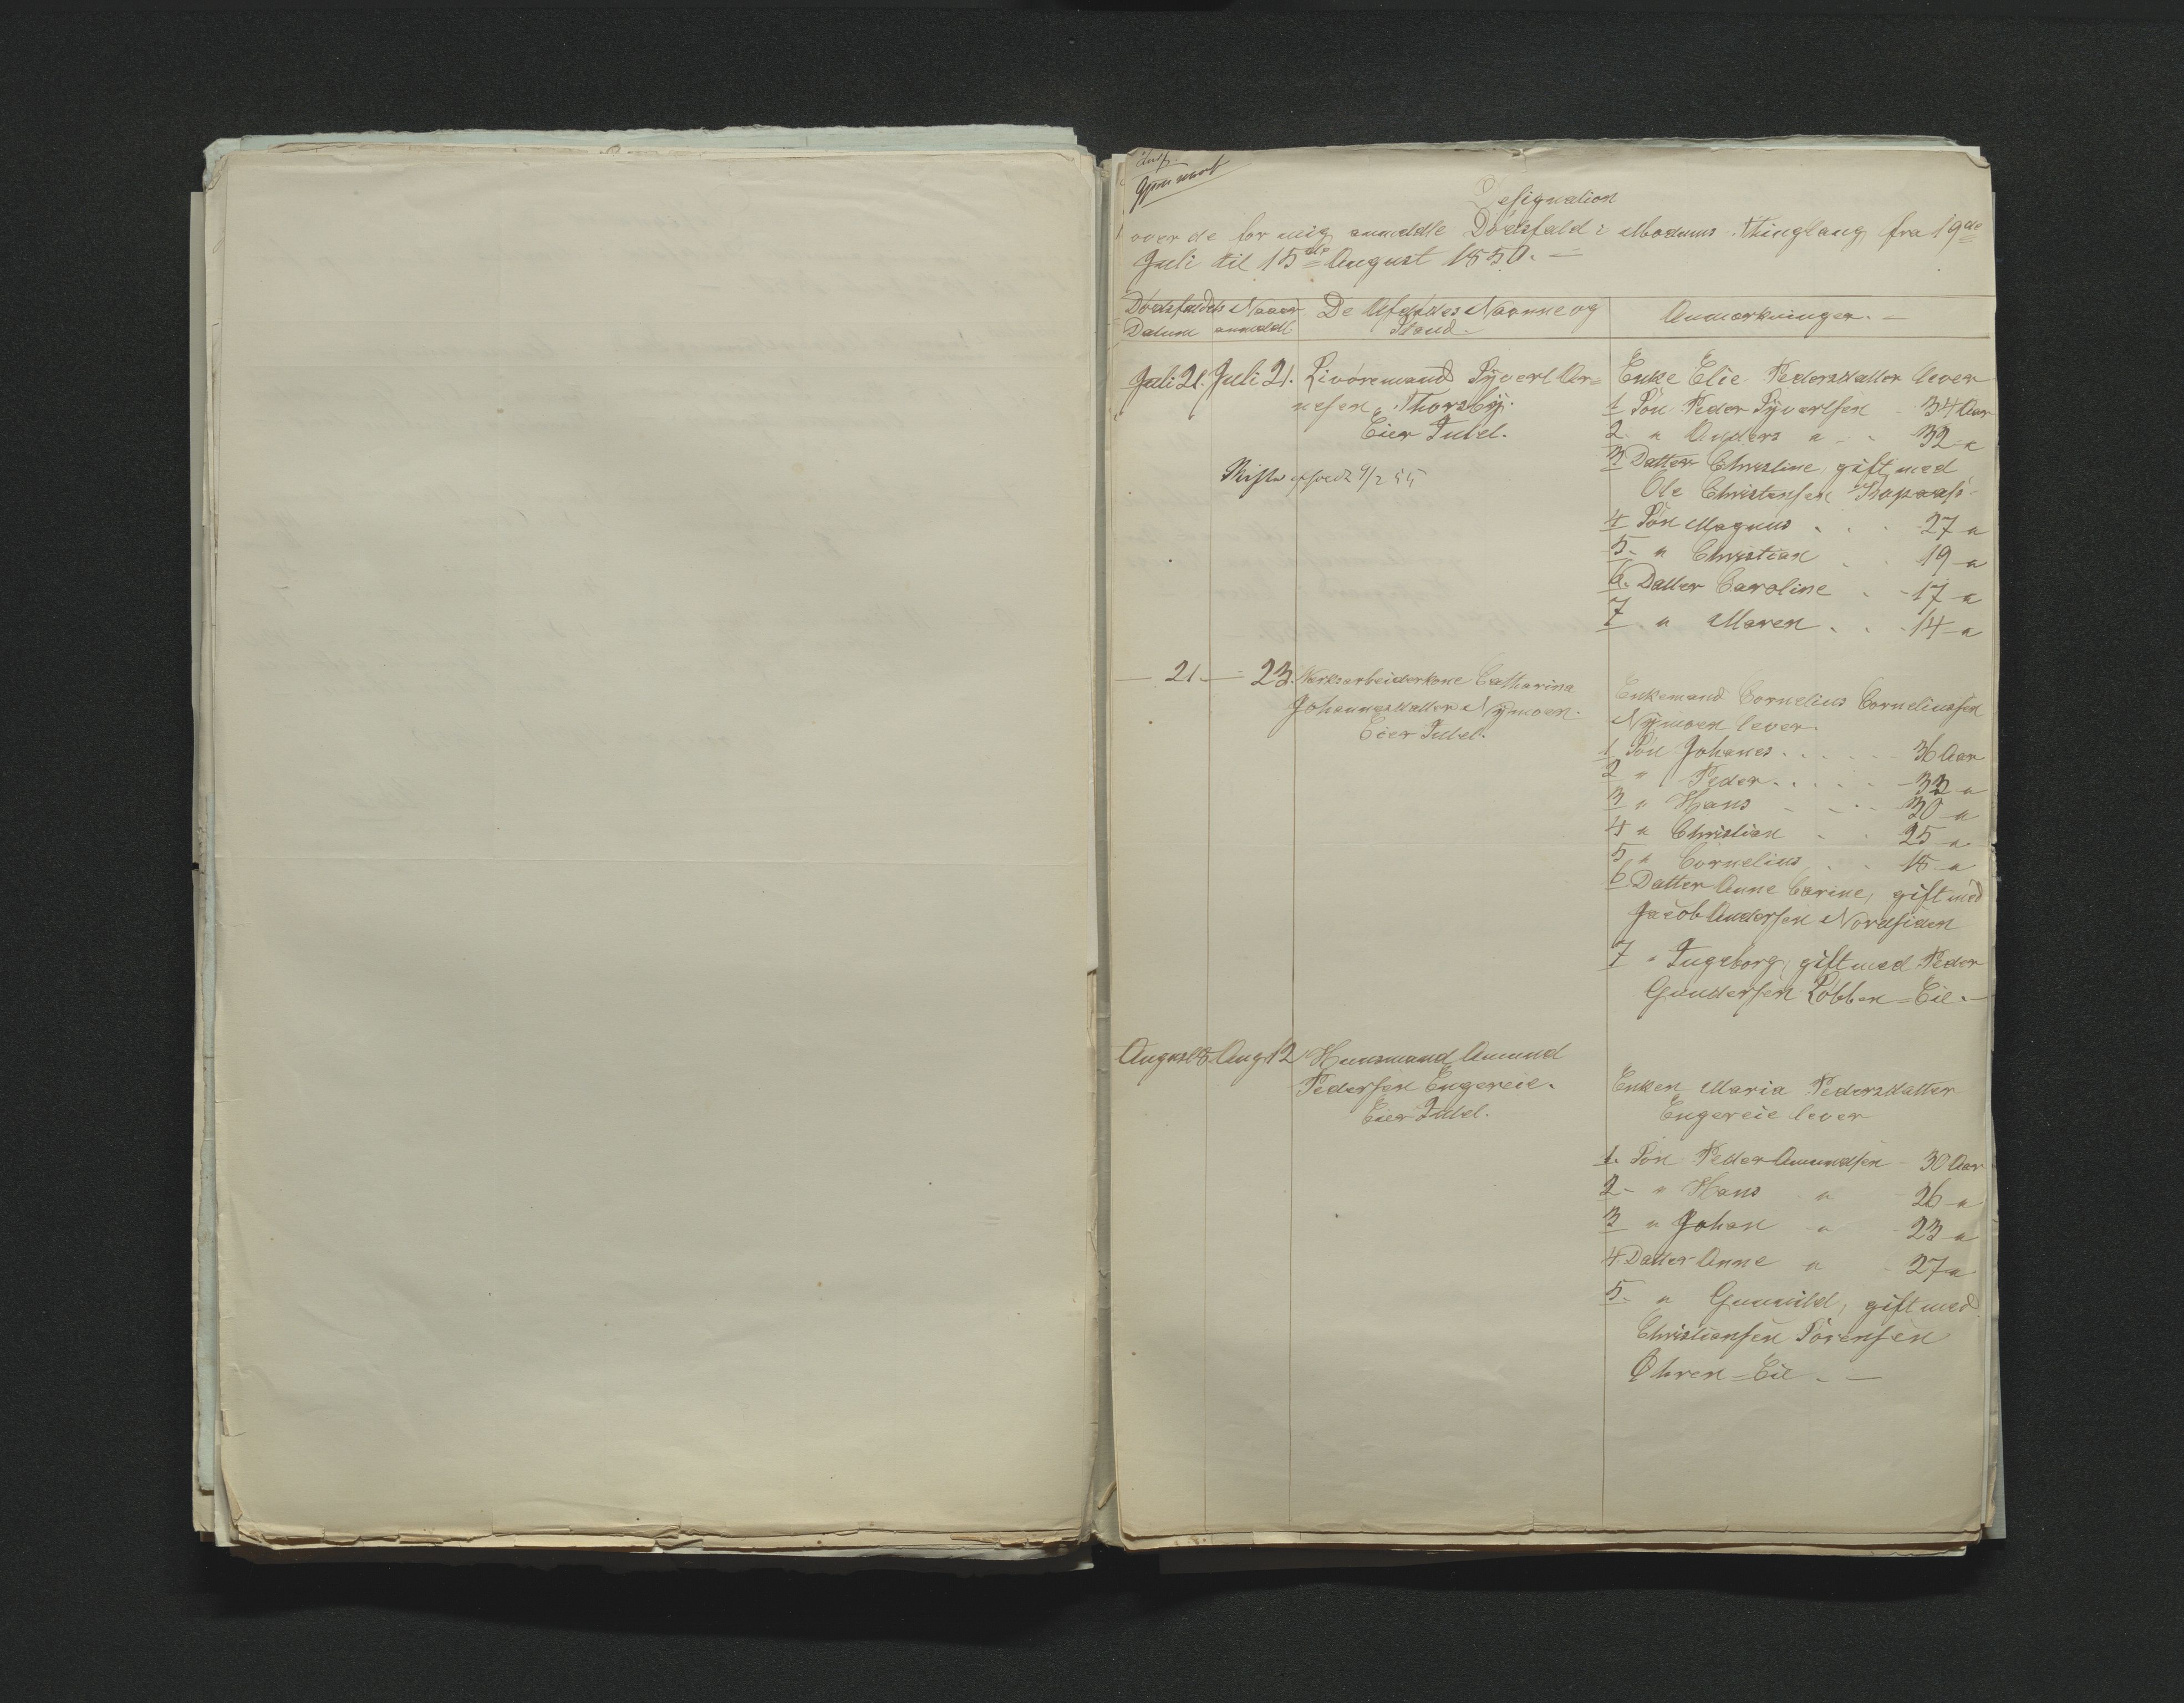 Designation
over de for mig anmeldte Dødsfald i Modums Thinglaug fra 19de
Juli til 15de August 1850. —
Dødsfaldets Naar De Afdødes Navne og Anmærkninger. —
Datum anmeldt Stand.
Juli 21. Juli 21. Livøremand Syvert Ar=
nesen, Thorsby.
Eier Intet.
Enke Elie Pedersdatter lever
1 Søn Peder Syvertsen - 34 Aar
2 " Anders " - 32 "
3 Datter Christine, gift med
Ole Christensen
4 Søn Magnus . . 27 "
5. " Christian . . 19 "
6. Datter Caroline . 17 "
7 " Maren . . 14 "
— 21 — — 23. Værksarbeiderkone Catharina
Johannesdatter Nymoen.
Eier Intet.
Enkemand Cornelius Corneliussen
Nymoen lever.
1 Søn Johanes . . . . 36 Aar
2 " Peder . . . . 33 "
3 " Hans - - . . 30 "
4 " Christian . . 25 "
5 " Cornelius . . 18 "
6 Datter Anne Carine, gift med
Jacob Andersen Nordsiden
7 " Ingeborg, gift med Peder
Gundersen Lobben=Eie. —
August 8. Aug. 12 Huusmand Amund
Pedersen Engereie.
Eier Intet.
Enken Maria Pedersdatter
Engereie lever
1. Søn Peder Amundsen - 30 Aar
2 - " Hans " 26 "
3 " Johan " 23 "
4 Datter Anne " 27 "
5. " Gunnild, gift med
Christiansen Sørensen
Øhren=Eie - —